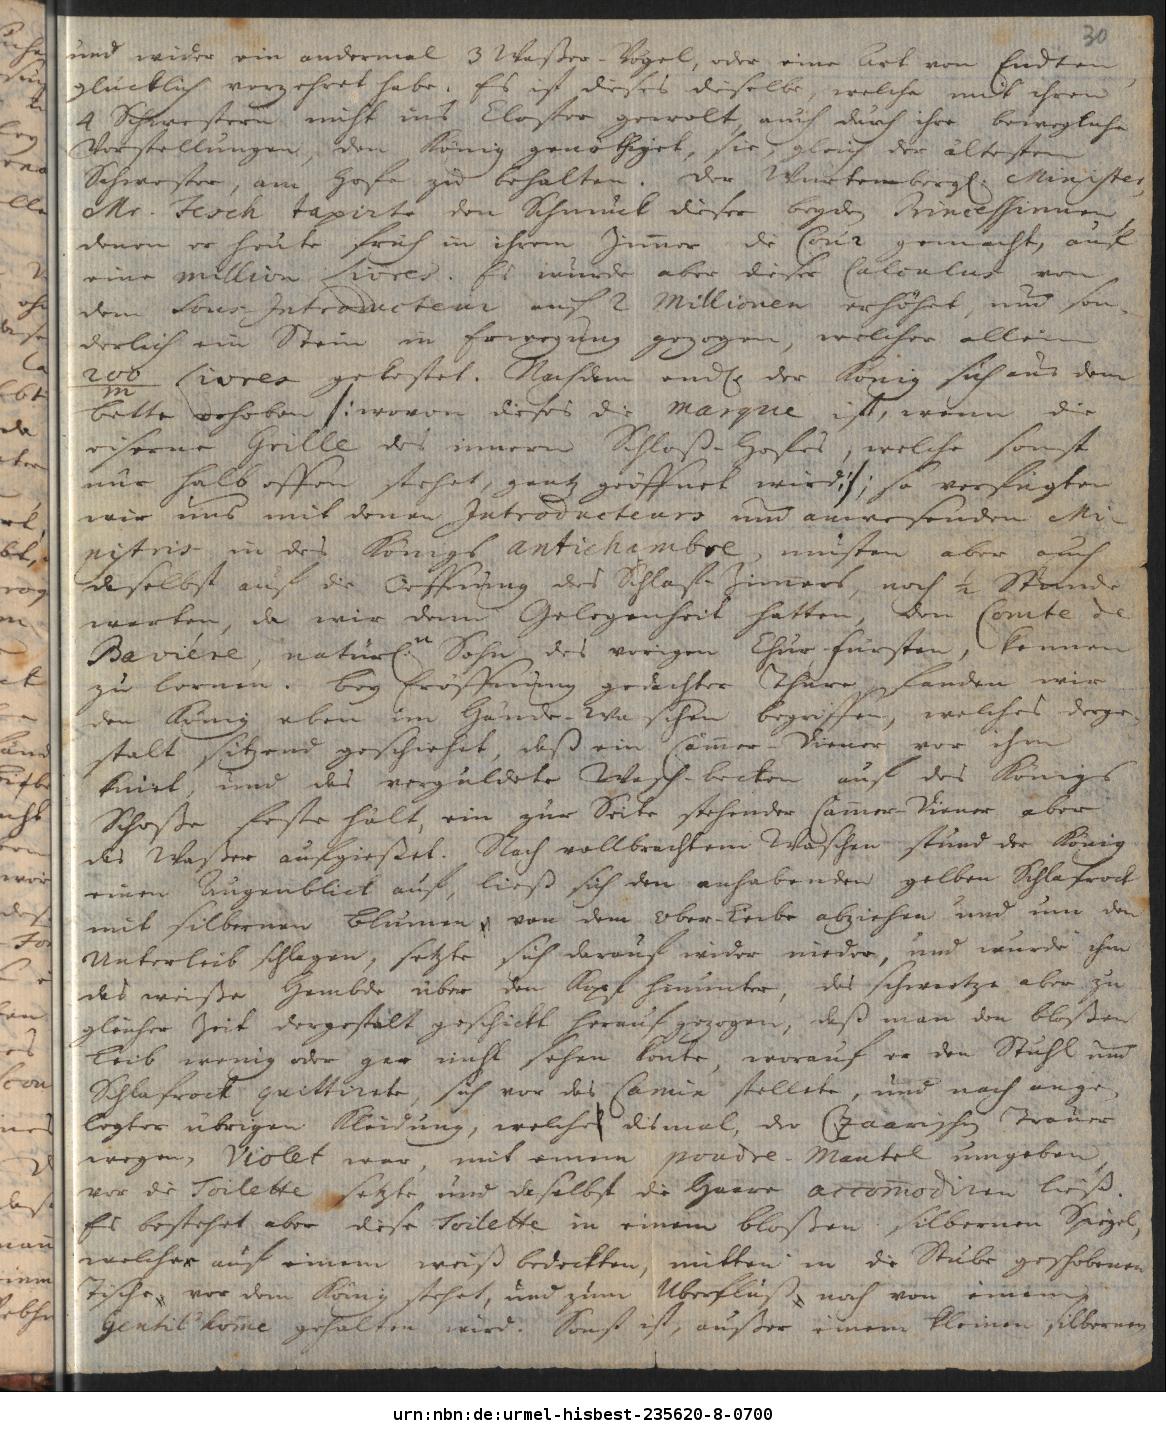 30
und wider ein andermal 3 Waßer-Vögel, oder eine Art von Endten,
glücklich verzehret habe. Es ist dieses dieselbe, welche mit ihren
4 Schwestern nicht ins Closter gewolt, auch durch ihre bewegliche
Vorstellungen, den König genöthiget, sie, gleich der ältesten
Schwester, am Hofe zu behalten. Der Würtembergl. Minister,
Mr. Fesch taxirte den Schmuck dieser beyden Princessinnen,
denen er heute früh in ihrem Zimmer die Cour gemacht, auf
eine million Livres. Es wurde aber dieser Calculus von
dem Sous-Introducteur auf 2 Millionen erhöhet, und son-
derlich ein Stein in Erwegung gezogen, welcher allein
200/m Livres gekostet. Nachdem endl. der König sich aus dem
bette erhoben /: wovon dieses die marque ist, wenn die
eiserne Grille des innern Schloß-Hofes, welche sonst
nur halb offen stehet, gantz geöffnet wird :/; so verfügten
wir uns mit denen Introducteurs und anwesenden Mi-
nistris in des Königs antichambre, musten aber auch
daselbst auf die Oeffnung des Schlaf-Zimmers, noch ½ Stunde
warten, da wir denn Gelegenheit hatten, den Comte de
Baviére, natürl.n Sohn des vorigen Chur-fürsten, kennen
zu lernen. bey Eröffnung gedachter Thüre, fanden wir
den König eben im Hände-Waschen begriffen, welches derge-
stalt sitzend geschiehet, daß ein Cammer-Diener vor ihm
kniet, und das vergüldete Wasch-becken auf des Königs
Schoße feste hält, ein zur Seite stehender Cammer-Diener aber
das Waßer aufgießet. Nach vollbrachtem Waschen stund der König
einen Augenblick auf, ließ sich den anhabenden gelben Schlafrock
mit silbernen blumen, von dem Ober-Leibe abziehen und um den
Unterleib schlagen, setzte sich darauf wider nieder, und wurde ihm
das weiße Hembde über den Kopf hinunter, das schwartze aber zu
gleicher Zeit dergestalt geschickt herauf gezogen, daß man den bloßen
Leib wenig oder gar nicht sehen konte, worauf er den Stuhl und
Schlafrock quittirete, sich vor das Camin stellete, und nach ange-
legter übrigen Kleidung, welche dismal, der Czaarischen Trauer
wegen, Violet war, mit einem poudre-Mantel umgeben,
vor die Toilette setzte und daselbst die Haare accommodiren ließ.
Es bestehet aber diese Toilette in einem bloßen silbernen Spiegel,
welcher auf einem weiß bedeckten, mitten in die Stube geschobenen
Tische, vor dem König stehet, und zum Uberfluß, noch von einem
Gentil'homme gehalten wird. Sonst ist, außer einem kleinen silbernen
urn:nbn:de:urmel-hisbest-235620-8-0700